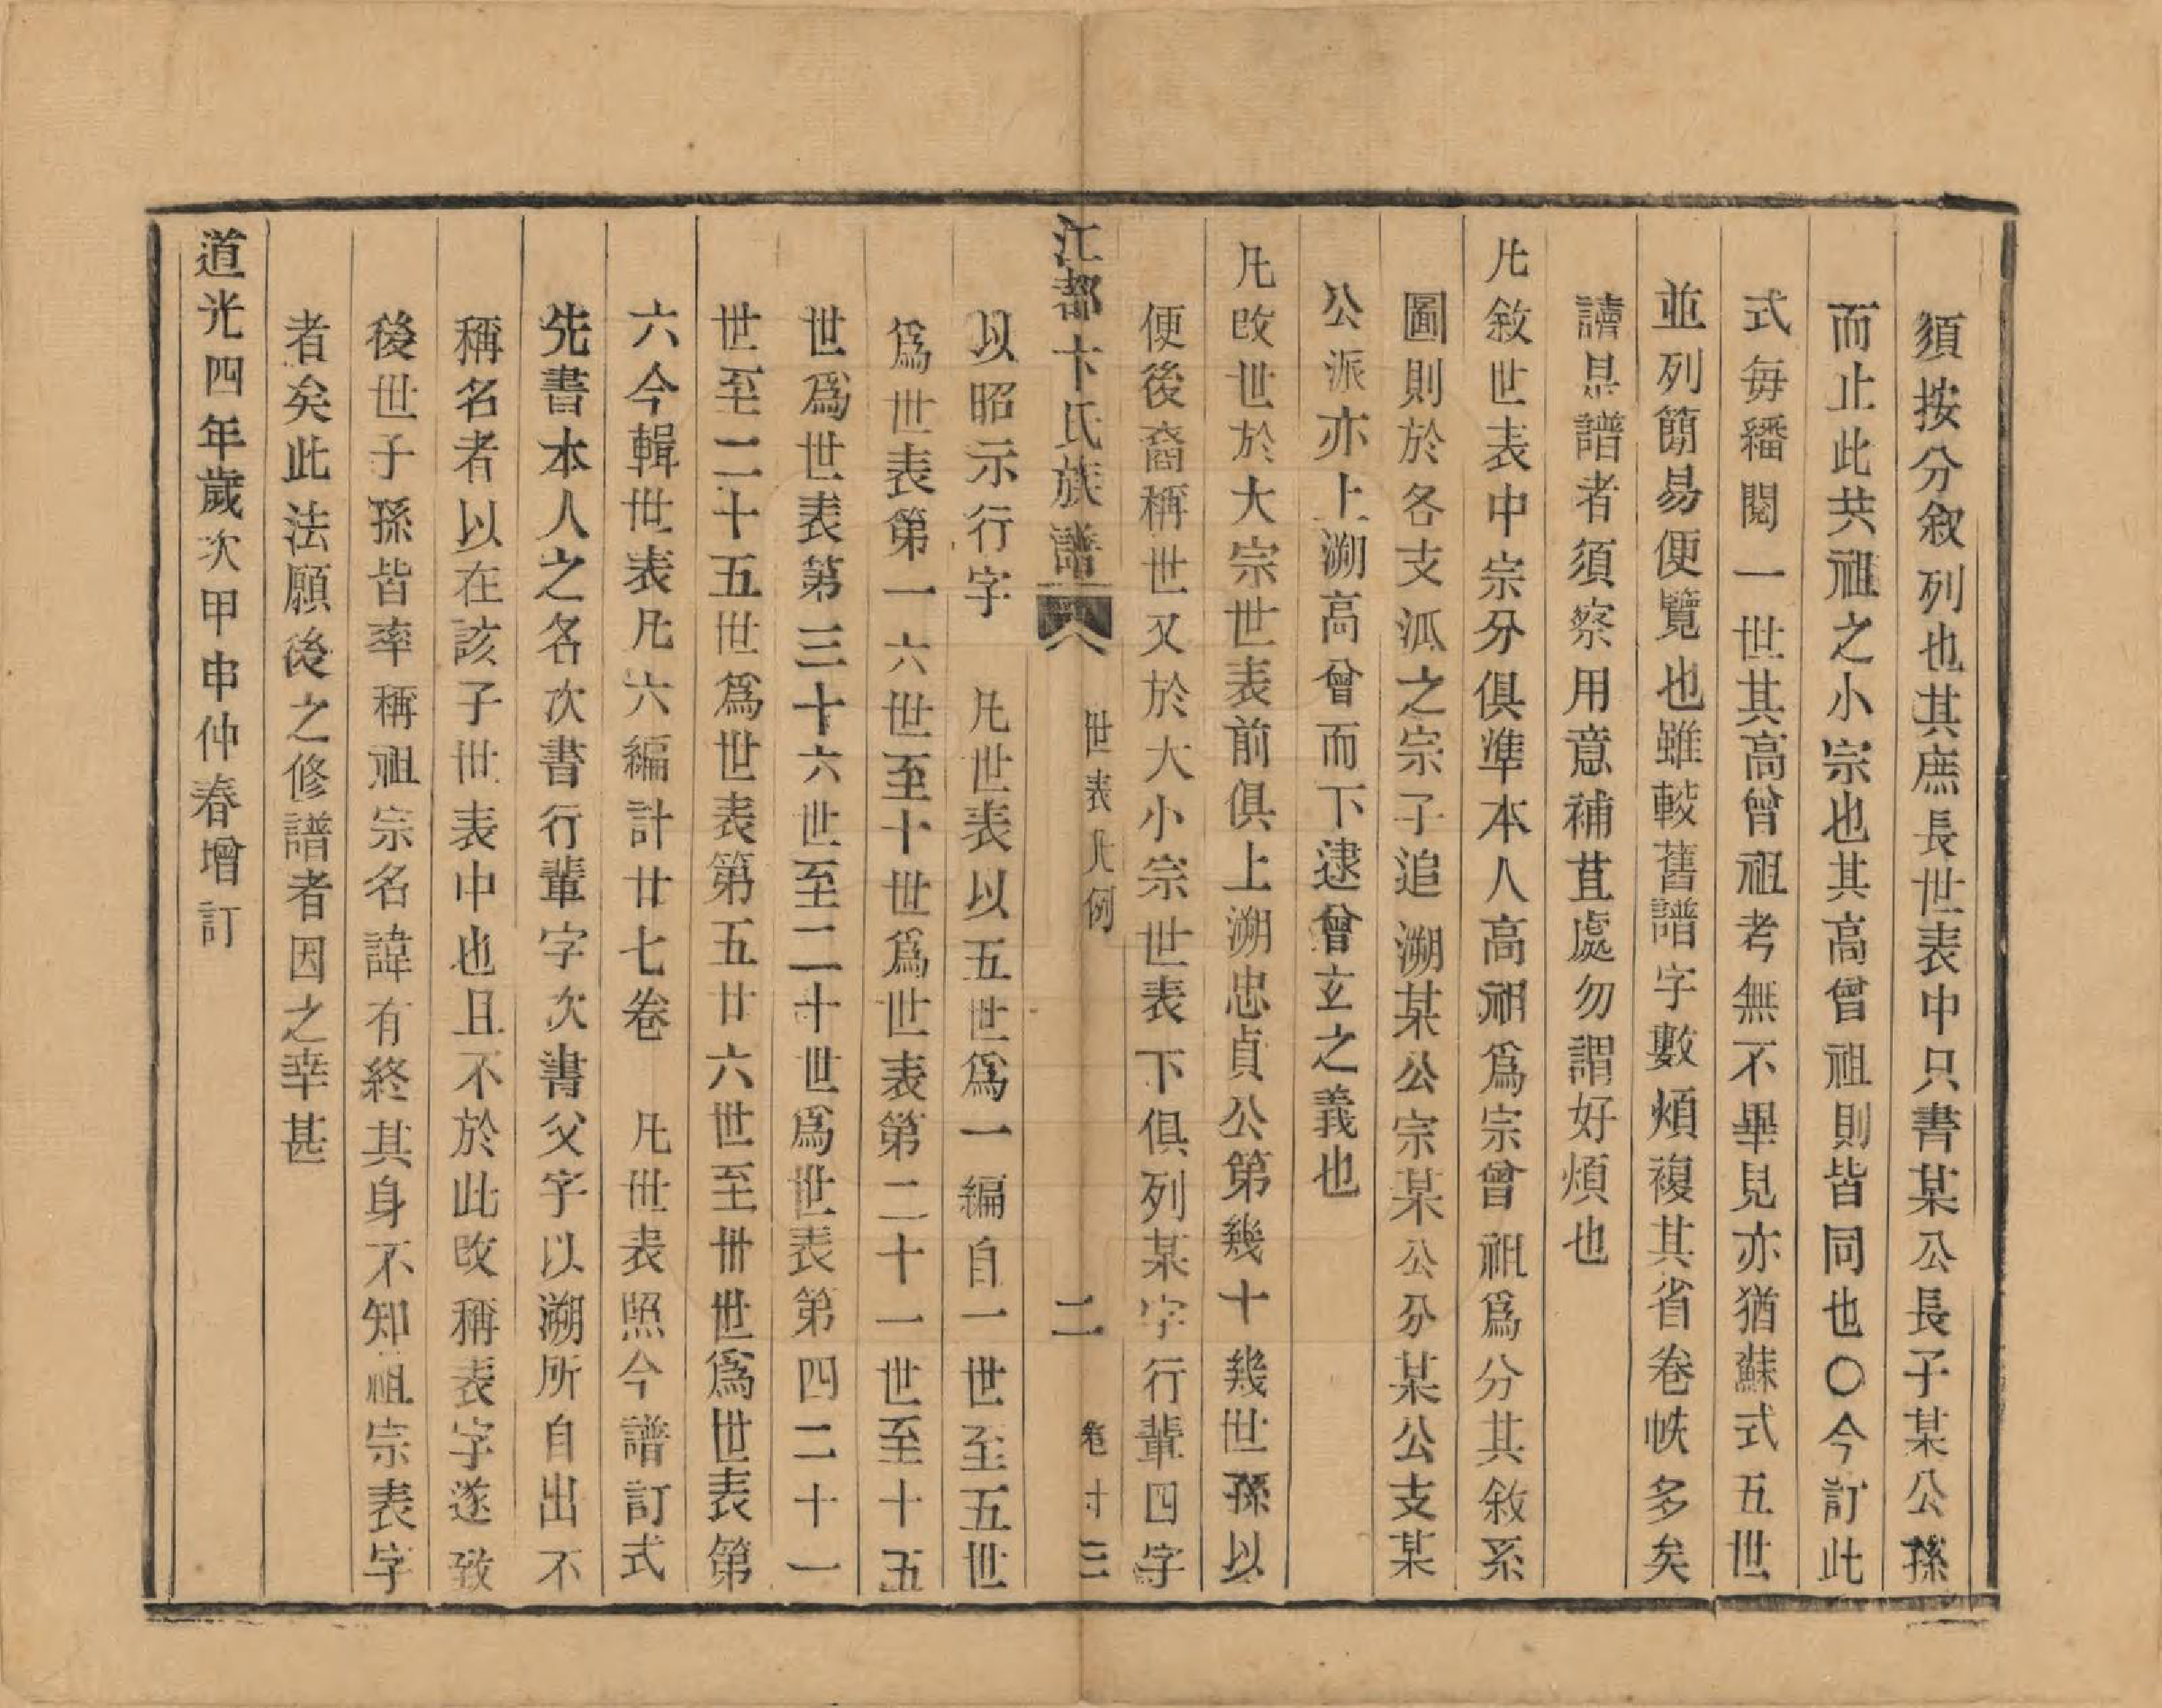 須按分叙列也其廡長世表中只書某公長子某公孫
而止此共祖之小宗也其高曾祖則皆同也〇今訂此
式每繙閱一世其高曾祖考無不畢見亦猶蘇式五世
並列簡易便覽也雖較舊譜字數煩複其省卷帙多矣
讀是譜者須察用意補苴處勿謂好煩也
凡敘世表中宗分俱準本人高祖爲宗曾祖爲分其敘系
圖則於各支派之宗子追溯某公宗某公分某公支某
公派亦上溯高曾而下逮曾玄之義也
凡改世於大宗世表前俱上溯忠貞公第幾十幾世孫以
便後裔稱世又於大小宗世表下俱列某字行輩四字
江都卞氏族譜
世表凡例
二
卷十三
以昭示行字　凡世表以五世爲一編自一世至五世
爲世表第一六世至十世爲世表第二十一世至十五
世爲世表第三十六世至二十世爲世表第四二十一
世至二十五世爲世表第五廿六世至卅世爲世表第
六今輯世表凡六編計廿七卷　凡世表照今譜訂式
先書本人之名次書行輩字次書父字以溯所自出不
稱名者以在該子世表中也且不於此改稱表字遂致
後世子孫皆率稱祖宗名諱有終其身不知祖宗表字
者矣此法願後之修譜者因之幸甚
道光四年歲次甲申仲春增訂